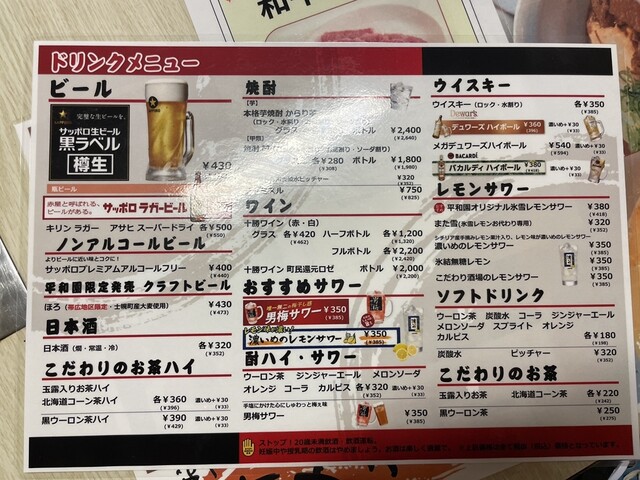 ドリンクメニュー
ビール
完璧な生ビールを。
サッポロ生ビール
黒ラベル
樽生
¥430
瓶ビール
赤星と呼ばれる、
ビールがある。
サッポロ ラガービール
キリン ラガー アサヒ スーパードライ 各¥500
(¥550)
ノンアルコールビール
よりビールに近い味とコクに!
サッポロプレミアムアルコールフリー ¥400
(¥440)
平和園限定発売 クラフトビール
ほろ(帯広地区限定・士幌町産大麦使用) ¥430
(¥473)
日本酒
日本酒(燗・常温・冷) ¥320
(¥352)
こだわりのお茶ハイ
玉露入りお茶ハイ
北海道コーン茶ハイ 各¥360 濃いめ+¥30
(¥396) (¥33)
黒ウーロン茶ハイ ¥390 濃いめ+¥30
(¥429) (¥33)
焼酎
【芋】
本格芋焼酎 からり芋
(ロック・水割り)
グラス ボトル ¥2,400
(¥2,640)
【甲類】
水割り・ソーダ割り)
各¥280 ボトル ¥1,800
(¥308) (¥1,980)
ピッチャー ¥320
(¥352)
ボトル ¥750
(¥825)
ワイン
十勝ワイン(赤・白)
グラス 各¥420 ハーフボトル 各¥1,200
(¥462) (¥1,320)
フルボトル 各¥2,200
(¥2,420)
十勝ワイン 町民還元ロゼ ボトル ¥2,000
(¥2,200)
おすすめサワー
男梅サワー ¥350
(¥385)
濃いめのレモンサワー ¥350
(¥385)
酎ハイ・サワー
ウーロン茶 ジンジャーエール メロンソーダ
オレンジ コーラ カルピス 各¥320 濃いめ+¥30
(¥352) (¥33)
手塩にかけた心にしゅわっと梅え味
男梅サワー ¥350
(¥385)
ウイスキー
ウイスキー(ロック・水割り) 各¥350
(¥385)
Dewar's
デュワーズ ハイボール ¥360
(396)
濃いめ+¥30
(¥33)
メガデュワーズハイボール ¥540 濃いめ+¥30
(¥594) (¥33)
BACARDI
バカルディ ハイボール ¥380
(¥418)
濃いめ+¥30
(¥33)
レモンサワー
平和園オリジナル氷雪レモンサワー ¥380
(¥418)
また雪(氷雪レモンお代わり専用) ¥320
(¥352)
シチリア産手摘みレモン果汁入り、レモン味が濃いめのレモンサワー
濃いめのレモンサワー ¥350
(¥385)
氷結無糖レモン ¥350
(¥385)
こだわり酒場のレモンサワー ¥350
(¥385)
ソフトドリンク
ウーロン茶 炭酸水 コーラ ジンジャーエール
メロンソーダ スプライト オレンジ
カルピス 各¥180
(¥198)
炭酸水 ピッチャー ¥320
(¥352)
こだわりのお茶
玉露入りお茶 北海道コーン茶 各¥220
(¥242)
黒ウーロン茶 ¥250
(¥275)
ストップ!20歳未満飲酒・飲酒運転。
妊娠中や授乳期の飲酒はやめましょう。